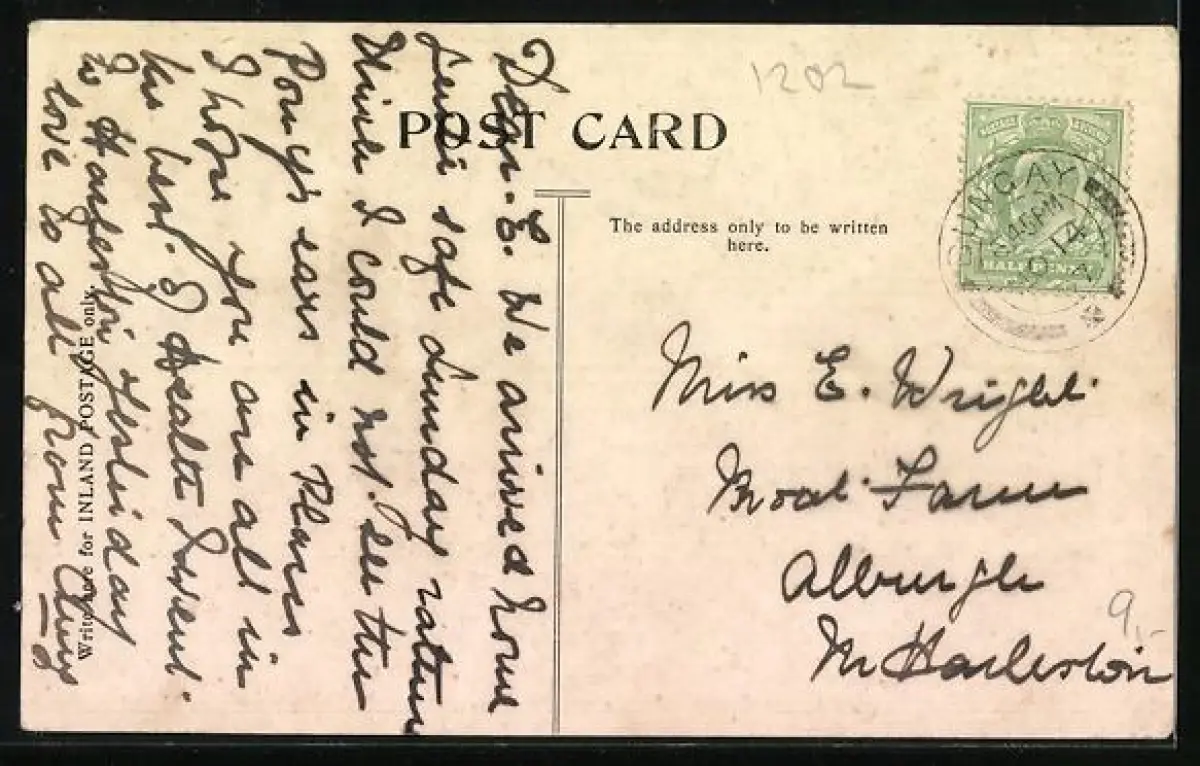 1202
POST CARD
The address only to be written
here.
Write here for INLAND POSTAGE only.
BUNGAY
45 PM
14
HALFPENNY
Dear E. We arrived home
safe Sunday
I could not see the
Pony's ears in places
I hope you are all in
the best. of Health I went
to Harleston yesterday
love to all from Amy
Miss E. Wright
Moat Farm
Alburgh
Nr Harleston
9,-